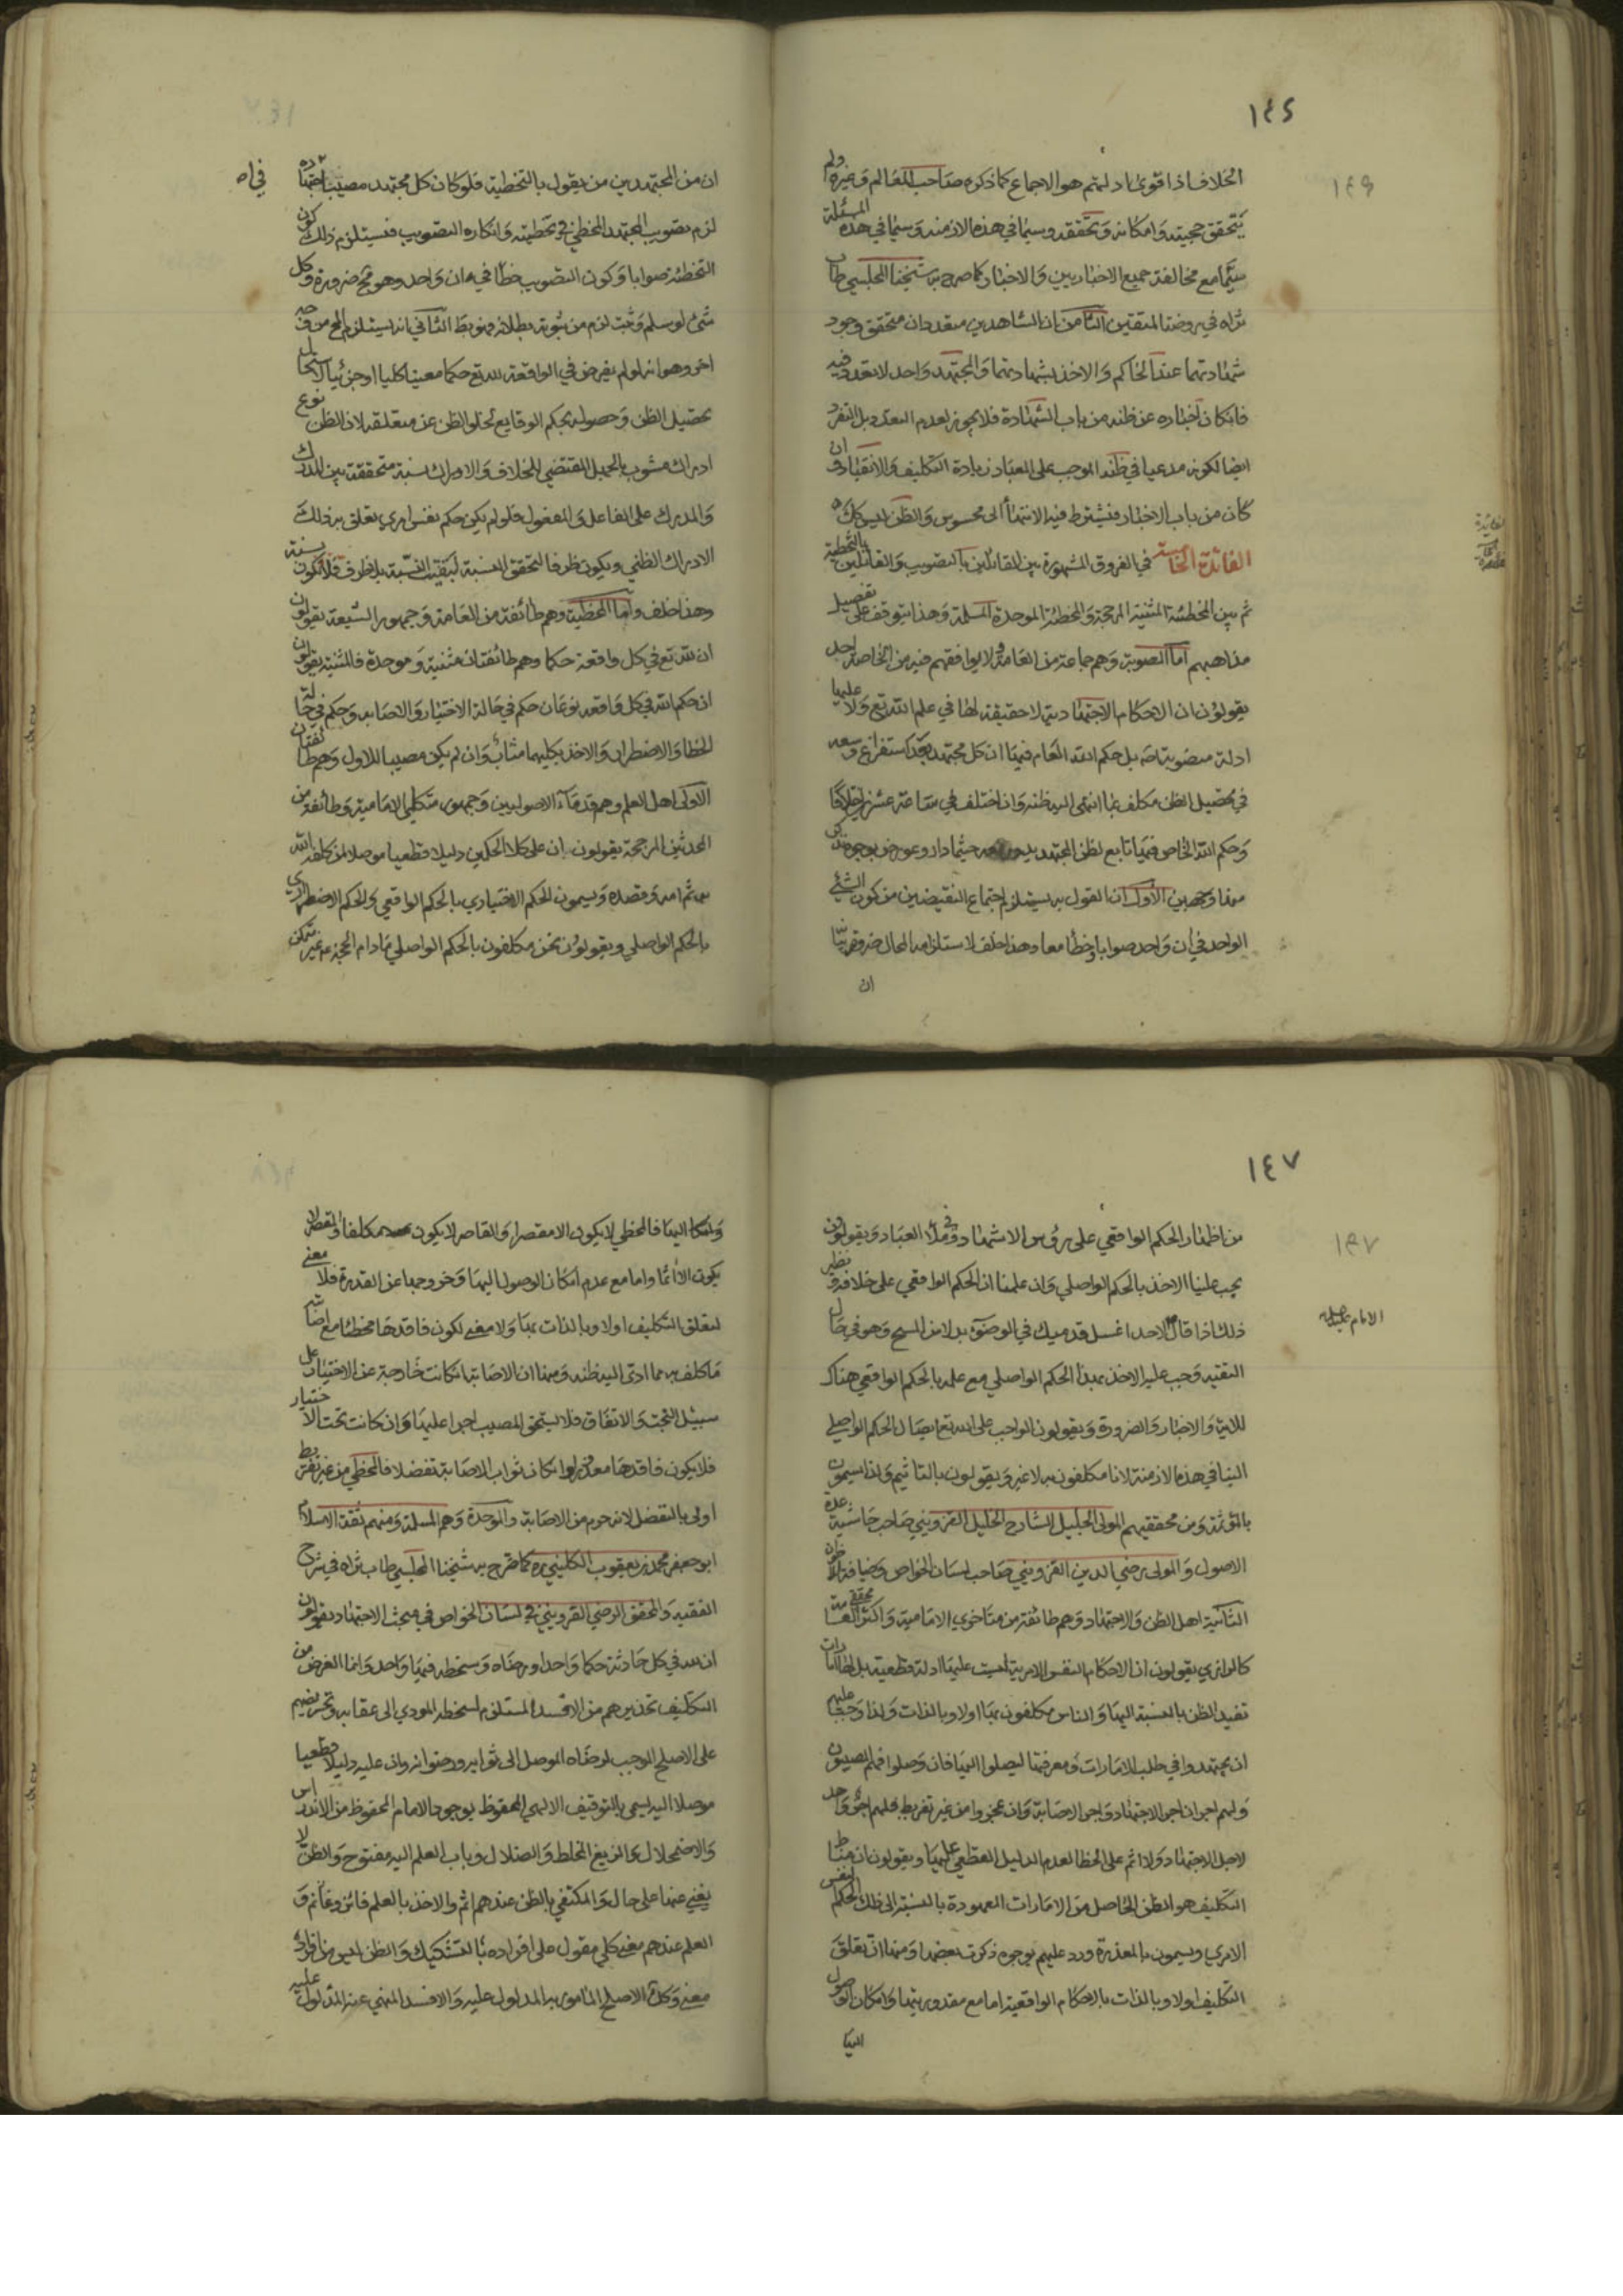 ١٤٦
الخلاف اذا قوى ادلتهم هو الاجماع كما ذكره صاحب المعالم وغيره ولم
يتحقق حجيته وامكانه وتحققه وسيما في هذه الازمنة وسيما في هذه المسئلة
سيما مع مخالفة جميع الاخباريين والاخبار كما صرح به شيخنا المجلسي طاب
ثراه في روضة المتقين الثامن ان الشاهدين متعددان متحقق وجود
شهادتهما عند الحاكم والاخذ بشهادتهما والمجتهد واحد لا تعدد فيه
فان كان اخباره عن ظنه من باب الشهادة فلا يجوز لعدم التعدد بل التفرد
ايضا لكونه مدعيا في ظنه الموجب على العباد زيادة التكليف والانقياد وان
كان من باب الاخبار فيشترط فيه الانتهاء الى محسوس والظن ليس كك
الفائدة الخامسة في الفروق المشهورة بين القائلين بالتصويب والقائلين بالتخطية
ثم بين المخطئة المثنية المرجحة والمخطئة الموحدة المسلمة وهذا يتوقف على تفصيل
مذاهبهم اما المصوبة وهم جماعة من العامة ولا يوافقهم فيه من الخاصة احد
يقولون ان الاحكام الاجتهادية لا حقيقة لها في علم الله تع ولا عليها
ادلة منصوبة منه بل حكم الله العام فيها ان كل مجتهد بعد استفراغ وسعه
في تحصيل الظن مكلف بما انتهى اليه ظنه وان اختلف في ساعة عشرين اختلافا
وحكم الله الخاص فيها تابع لظن المجتهد يدور معه حيثما دار وعورض بوجوه
منها وجهين الاول ان القول به يستلزم اجتماع النقيضين من كون الشئ
الواحد في ان واحد صوابا وخطأ معا وهذا خلف لاستلزامه المحال ضرورة
ان
ان من المجتهدين من يقول بالتخطية فلو كان كل مجتهد مصيبا في اجتهاده
لزم تصويب المجتهد المخطئ في تخطيته وانكاره التصويب فيستلزم ذلك كون
التخطئة صوابا وكون التصويب خطأ في ان واحد وهو مح ضرورة وكل
شئ لو سلم وثبت لزم من ثبوته بطلانه فهو بط الثاني انه يستلزم المح من وجه
اخر وهو انه لو لم يفرض في الواقعة لله تع حكما معينا كليا او جزئيا لاستحال
تحصيل الظن وحصوله بحكم الوقايع لخلو الظن عن متعلقه لان الظن نوع
ادراك مشوب بالجهل المقتضي للخلاف والادراك نسبة متحققة بين المدرك
والمدرك على الفاعل والمفعول فلو لم يكن حكم نفس امري يتعلق به ذلك
الادراك الظني ويكون ظرفا لتحقق النسبة لبقيت النسبة بلا ظرف فلا تكون نسبة
وهذا خلف واما المخطية وهم طائفة من العامة وجمهور الشيعة يقولون
ان لله تع في كل واقعة حكما وهم طائفتان مثنية وموحدة فالمثنية يقولون
ان حكم الله في كل واقعه نوعان حكم في حالة الاختيار والاصابه وحكم في حالة
الخطا والاضطرار والاخذ بكليهما مثاب وان لم يكن مصيبا للاول وهم طائفتان
الاولى اهل العلم وهم قدماء الاصوليين وجمهور متكلمي الامامية وطائفة من
المحدثين المرجحة يقولون ان على كلا الحكمين دليلا قطعيا موصلا لمن كلفه الله
وقصده ويسمون الحكم الاختياري بالحكم الواقعي والحكم الاضطراري
بالحكم الواصلي ويقولون نحن مكلفون بالحكم الواصلي ما دام الحجة ع غير متمكن
١٤٧
من اظهار الحكم الواقعي على رؤس الاشهاد وفي ملأ العباد ويقولون
يجب علينا الاخذ بالحكم الواصلي وان علمنا ان الحكم الواقعي على خلافه ونظير
ذلك اذا قال الامام عليه السلام لاحد اغسل قدميك في الوضوء بدلا من المسح وهو في حال
التقيه وجب عليه الاخذ بهذا الحكم الواصلي مع علمه بالحكم الواقعي هناك
للاية والاخبار والضرورة ويقولون الواجب على الله تع ايصال الحكم الواصلي
الينا في هذه الازمنة لانا مكلفون به لا غير ويقولون بالتاثيم ولذا يسمون
بالمؤثمة ومن محققيهم المولى الجليل الشارح الخليل القزويني صاحب حاشية عدة
الاصول والمولى رضي الدين القزويني صاحب لسان الخواص وضيافة الاخوان
الثانية اهل الظن والاجتهاد وهم طائفة من متاخري الامامية واكثر محققي العامة
كالرازي يقولون ان الاحكام النفس الامرية ليست عليها ادلة قطعية بل لها امارات
تفيد الظن بالنسبة اليها والناس مكلفون بها اولا وبالذات ولذا وجب عليهم
ان يجتهدوا في طلب الامارات ومعرفتها ليصلوا اليها فان وصلوا فهم المصيبون
ولهم اجران اجر الاجتهاد واجر الاصابة وان عجزوا من غير تفريط فلهم اجر واحد
لاجل الاجتهاد ولا اثم على الخطا لعدم الدليل القطعي عليها ويقولون ان مناط
التكليف هو الظن الحاصل من الامارات المعهودة بالنسبة الى ذلك الحكم النفس
الامري ويسمون بالمعذرة ورد عليهم بوجوه ذكرت بعضها ومنها ان تعلق
التكليف اولا وبالذات بالاحكام الواقعية اما مع مقدوريتها وامكان الوصول
اليها
اليها فالمخطي لا يكون الا مقصرا والقاصر لا يكون مكلفا والمقصر لا
يكون الا آثما واما مع عدم امكان الوصول اليها وخروجها عن القدرة فلا معنى
لتعلق التكليف اولا وبالذات بها ولا معنى لكون فاقدها مخطئا مع اصابته
ما كلف به مما ادى اليه ظنه ومنها ان الاصابة ان كانت خارجة عن الاختيار على
سبيل البخت والاتفاق فلا يستحق المصيب اجرا عليها وان كانت تحت الاختيار
فلا يكون فاقدها معذورا وان كان ثواب الاصابة تفضلا فالمخطي من غير تفريط
اولى بالتفضل لانه حرم من الاصابة والموحدة وهم المسلمة ومنهم ثقة الاسلام
ابو جعفر محمد بن يعقوب الكليني ره كما صرح به شيخنا المجلسي طاب ثراه في شرح
الفقيه والمحقق الرضي القزويني في لسان الخواص في مبحث الاجتهاد يقولون
ان لله في كل حادثة حكما واحدا ورضاه وسخطه فيها واحد وانما الغرض من
التكليف تحذيرهم من الافسد المستلزم لسخطه المودي الى عقابه وتحريضهم
على الاصلح الموجب لرضاه الموصل الى ثوابه ورضوانه وان عليه دليلا قطعيا
موصلا اليه يسمى بالتوقيف الالهي المحفوظ بوجود الامام المحفوظ من الاندراس
والاضمحلال والزيغ والخلط والضلال وباب العلم اليه مفتوح والظن لا
يغني عنها على حال والمكتفي بالظن عندهم اثم والاخذ بالعلم فائز وغانم و
العلم عندهم معنى كلي مقول على افراده بالتشكيك والظن ليس من افراده
معنى وكل الاصلح المامور به المدلول عليه والافسد المنهي عنه المدلول عليه